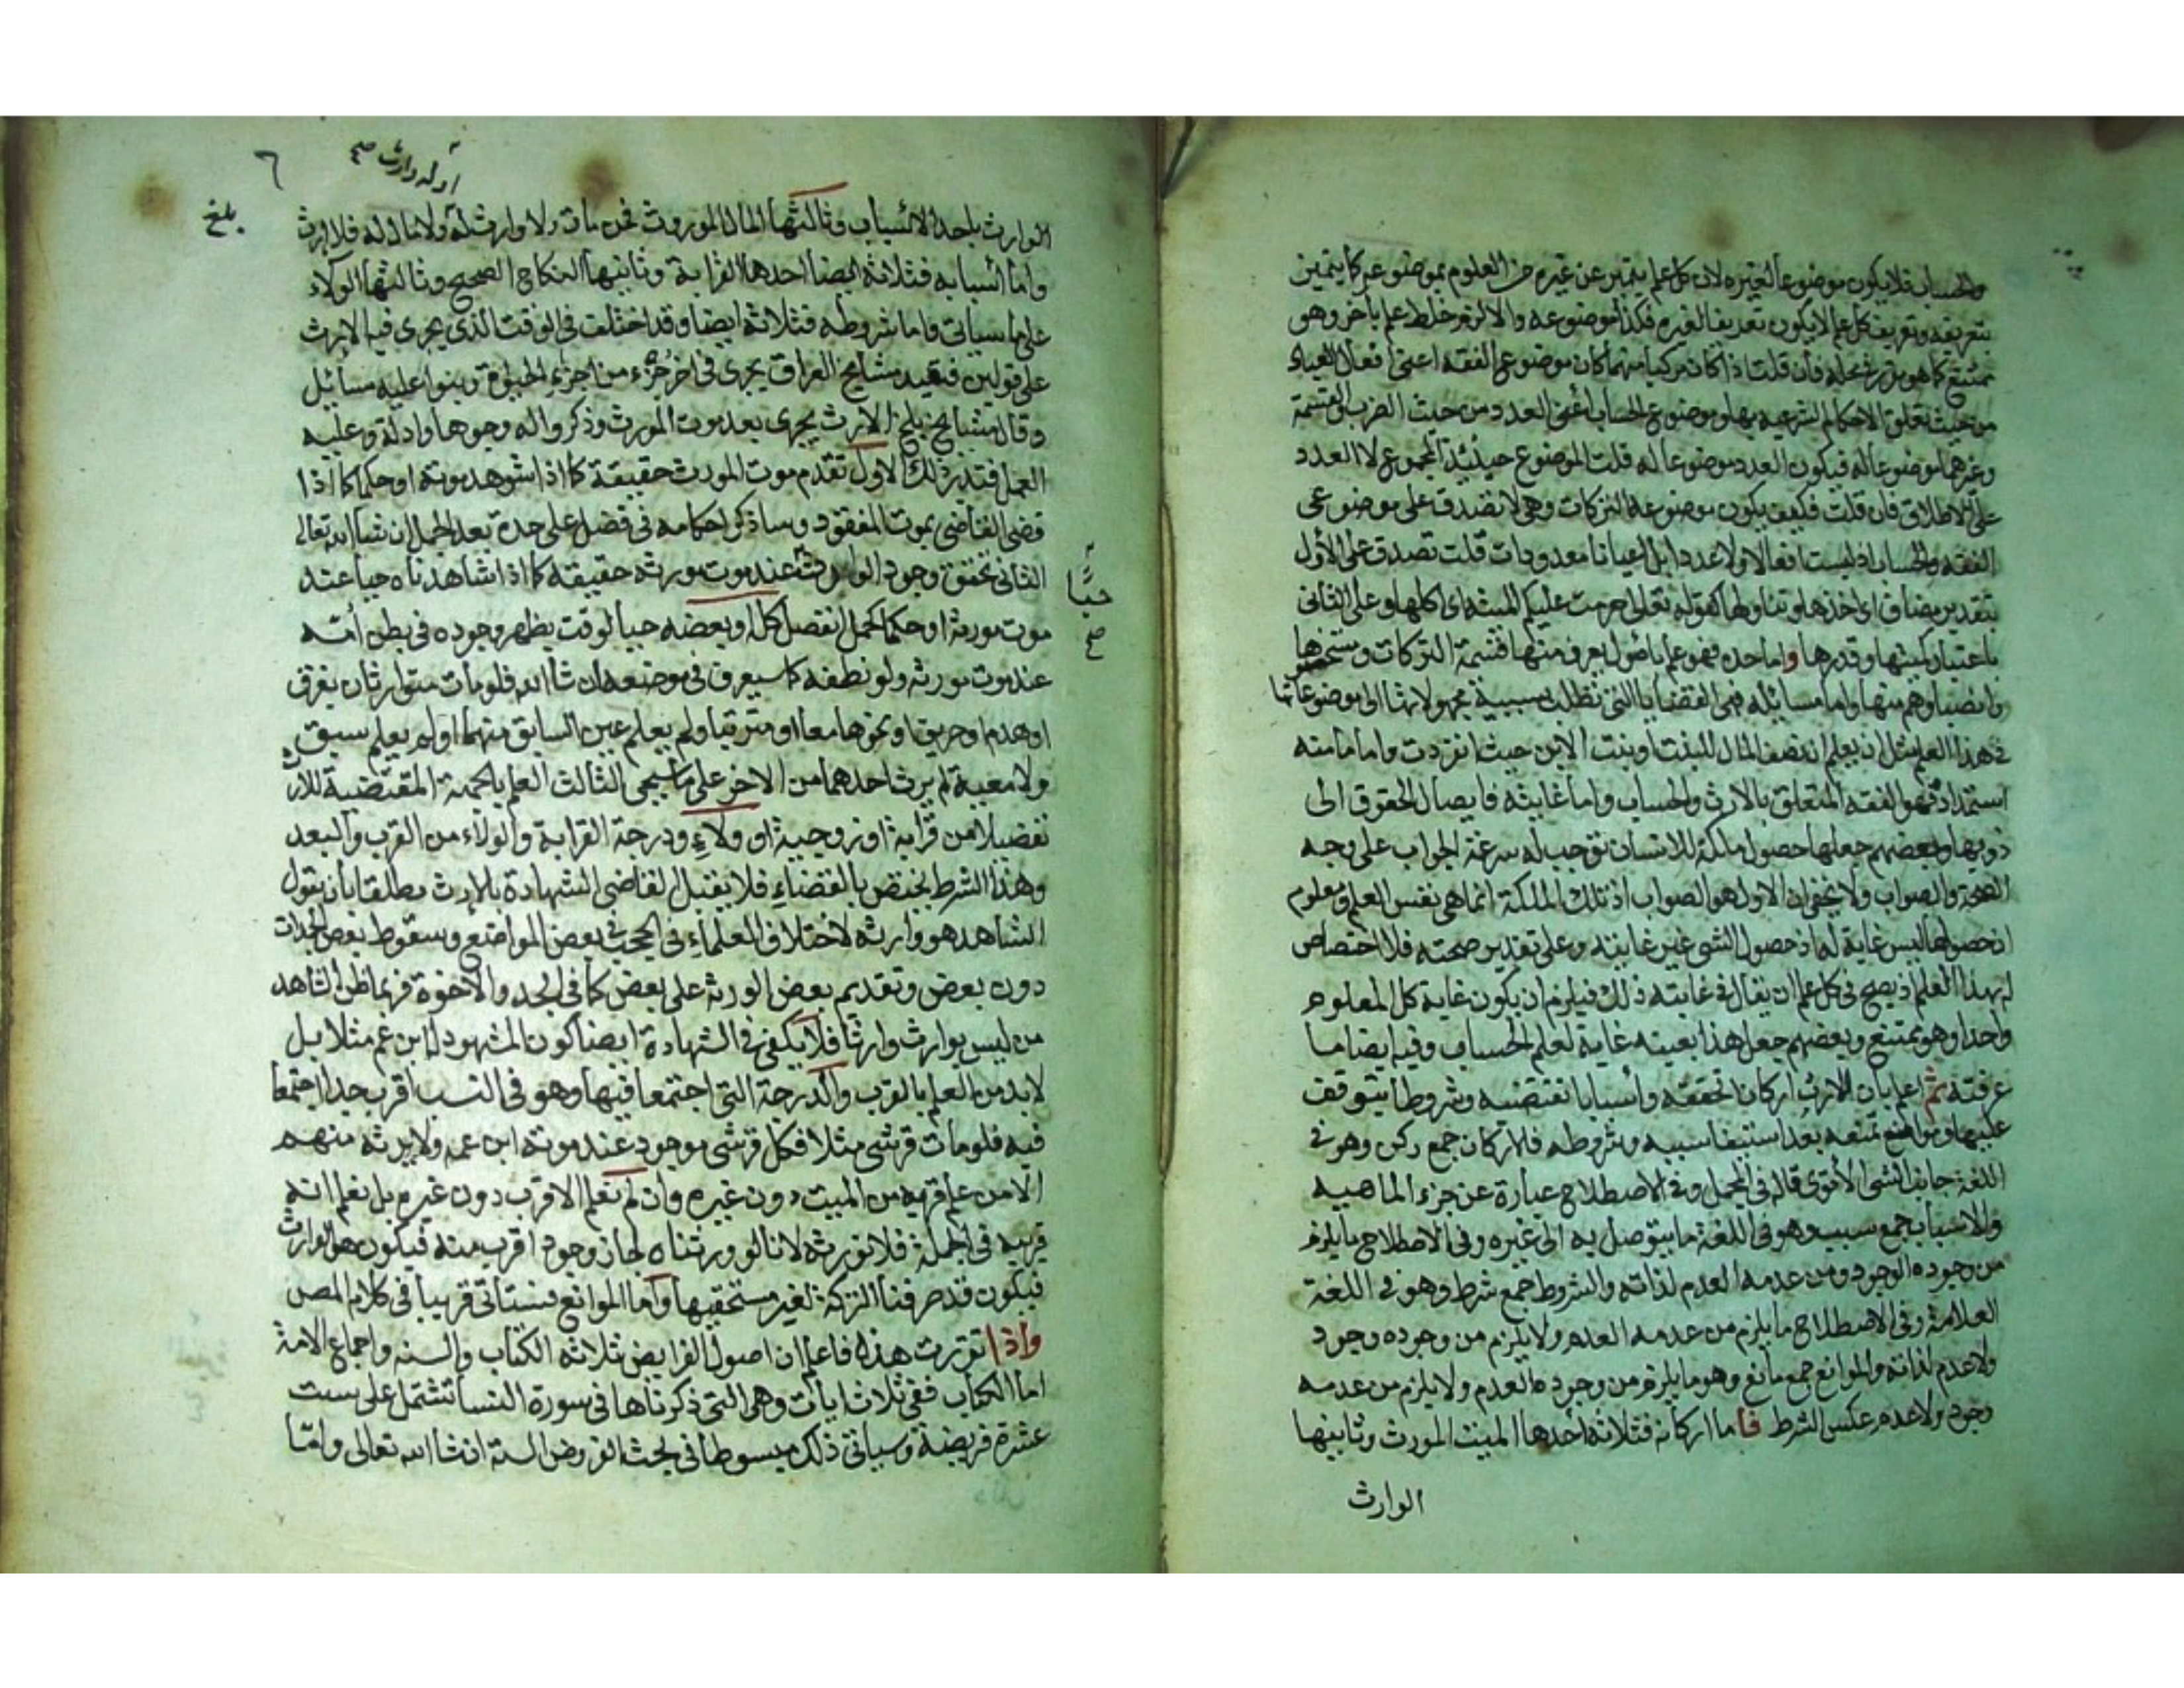 والحساب فلا يكون موضوعا لغيره لان كل علم يتميز عن غيره من العلوم بموضوعه كما يتميز
بتعريفه وتعريف كل علم لا يكون تعريفا لغيره فكذا موضوعه والا لزم خلط علم بآخر وهو
ممتنع كما هو مقرر في محله فان قلت اذا كان مركبا منهما كان موضوع علم الفقه اعني افعال العباد
من حيث تعلق الاحكام الشرعيه بها وموضوع الحساب اعني العدد من حيث الضرب والقسمة
وغيرهما موضوعا له فيكون العدد موضوعا له قلت الموضوع حينئذ المجموع لا العدد
على الاطلاق فان قلت فكيف يكون موضوعه التركات وهي لا تصدق على موضوعي
الفقه والحساب اذ ليست افعالا ولا عددا بل اعيانا معدودات قلت تصدق على الأول
بتقدير مضاف اي اخذها وتناولها كقوله تعالى حرمت عليكم الميتة اي اكلها وعلى الثاني
باعتبار كميتها وقدرها واما حده فهو علم باصول يعرف منها قسمة التركات ومستحقها
وانصباؤهم منها واما مسائله فهي القضايا التي تطلب نسبية مجهولاتها الى موضوعاتها
في هذا العلم مثل ان يعلم ان نصف المال للبنت او بنت الابن حيث انفردت واما ما منه
استمداده فهو الفقه المتعلق بالارث والحساب واما غايته فايصال الحقوق الى
ذويها وبعضهم جعلها حصول ملكة للانسان توجب له سرعة الجواب على وجه
الصحة والصواب ولا يخفى ان الاول هو الصواب اذ تلك الملكة انما هي نفس العلم ومعلوم
ان حصولها ليس غاية لها اذ حصول الشي غير غايته وعلى تقدير صحته فلا اختصاص
له بهذا العلم اذ يصح في كل علم ان يقال في غايته ذلك فيلزم ان يكون غاية كل العلوم
واحدا وهو ممتنع وبعضهم جعل هذا بعينه غاية لعلم الحساب وفيه ايضا ما
عرفته ثم اعلم بان للارث اركانا تحققه واسبابا تقتضيه وشروطا يتوقف
عليها وموانع تمنعه بعد استيفا سببه وشروطه فالاركان جمع ركن وهو في
اللغة جانب الشي الاقوى قاله في المجمل وفي الاصطلاح عبارة عن جزء الماهيه
والاسباب جمع سبب وهو في اللغة ما يتوصل به الى غيره وفي الاصطلاح ما يلزم
من وجوده الوجود ومن عدمه العدم لذاته والشروط جمع شرط وهو في اللغة
العلامة وفي الاصطلاح ما يلزم من عدمه العدم ولا يلزم من وجوده وجود
ولا عدم لذاته والموانع جمع مانع وهو ما يلزم من وجوده العدم ولا يلزم من عدمه
وجود ولا عدم عكس الشرط فاما اركانه فثلاثة احدها الميت المورث وثانيها
الوارث
٦
اوله وارث صح
الوارث باحد الاسباب وثالثها المال الموروث فمن مات ولا وارث له ولا مال له فلا ارث
بلخ
واما اسبابه فثلاثة ايضا احدها القرابة وثانيها النكاح الصحيح وثالثها الولاء
على ما سياتي واما شروطه فثلاثة ايضا وقد اختلف في الوقت الذي يجري فيه الارث
على قولين فعند مشايخ العراق يجري في اخر جزء من اجزاء الحيوة وبنوا عليه مسائل
وقال مشايخ بلخ الارث يجري بعد موت المورث وذكروا له وجوها وادلة وعليه
العمل فتدبر ذلك الاول تقدم موت المورث حقيقة كما اذا شوهد موته او حكما كما اذا
قضى القاضي بموت المفقود وساذكر احكامه في فصل على حدة بعد الحمل ان شاء الله تعالى
الثاني تحقق وجود الوارث عند موت مورثه حقيقة كما اذا شاهدناه حيا عند
حيا صح
موت مورثه او حكما كحمل انفصل كله او بعضه حيا لوقت يظهر وجوده في بطن امه
عند موت مورثه ولو نطفه كما سيعرف في موضعه ان شا الله فلو مات متوارثان بغرق
او هدم او حريق او نحوها معا او مترتبا ولم يعلم عين السابق منهما او لم يعلم سبق
ولا معية لم يرث احدهما من الاخر على ما سيجي الثالث العلم بالجهة المقتضية للارث
تفصيلا من قرابة او زوجية او ولاء ودرجة القرابة والولاء من القرب والبعد
وهذا الشرط يختص بالقضاء فلا يقبل القاضي الشهادة بالارث مطلقا بان يقول
الشاهد هو وارثه لاختلاف العلماء في الحجب في بعض المواضع وسقوط بعض الجدات
دون بعض وتقديم بعض الورثة على بعض كما في الجد والاخوة فربما ظن الشاهد
من ليس بوارث وارثا فلا يكفي في الشهادة ايضا كون المشهود له ابن عم مثلا بل
لا بد من العلم بالقرب والدرجة التي اجتمعا فيها وهو في النسب اقرب جد اجتمعا
فيه فلو مات قرشي مثلا فكل قرشي موجود عند موته ابن عمه ولا يرثه منهم
الا من علم قربه من الميت دون غيره وان لم نعلم الاقرب دون غيره بل نعلم انه
قريبه في الجملة فلا نورثه لانا لو ورثناه لجاز وجود اقرب منه فيكون هو الوارث
فيكون قد صرفنا التركة لغير مستحقيها واما الموانع فستاتي قريبا في كلام المص
واذا تقررت هذه فاعلم ان اصول الفرايض ثلاثة الكتاب والسنه واجماع الامة
اما الكتاب ففي ثلاث ايات وهي التي ذكرناها في سورة النسا تشتمل على ست
عشرة فريضة وسياتي ذلك مبسوطا في بحث الفروض الستة ان شا الله تعالى واما